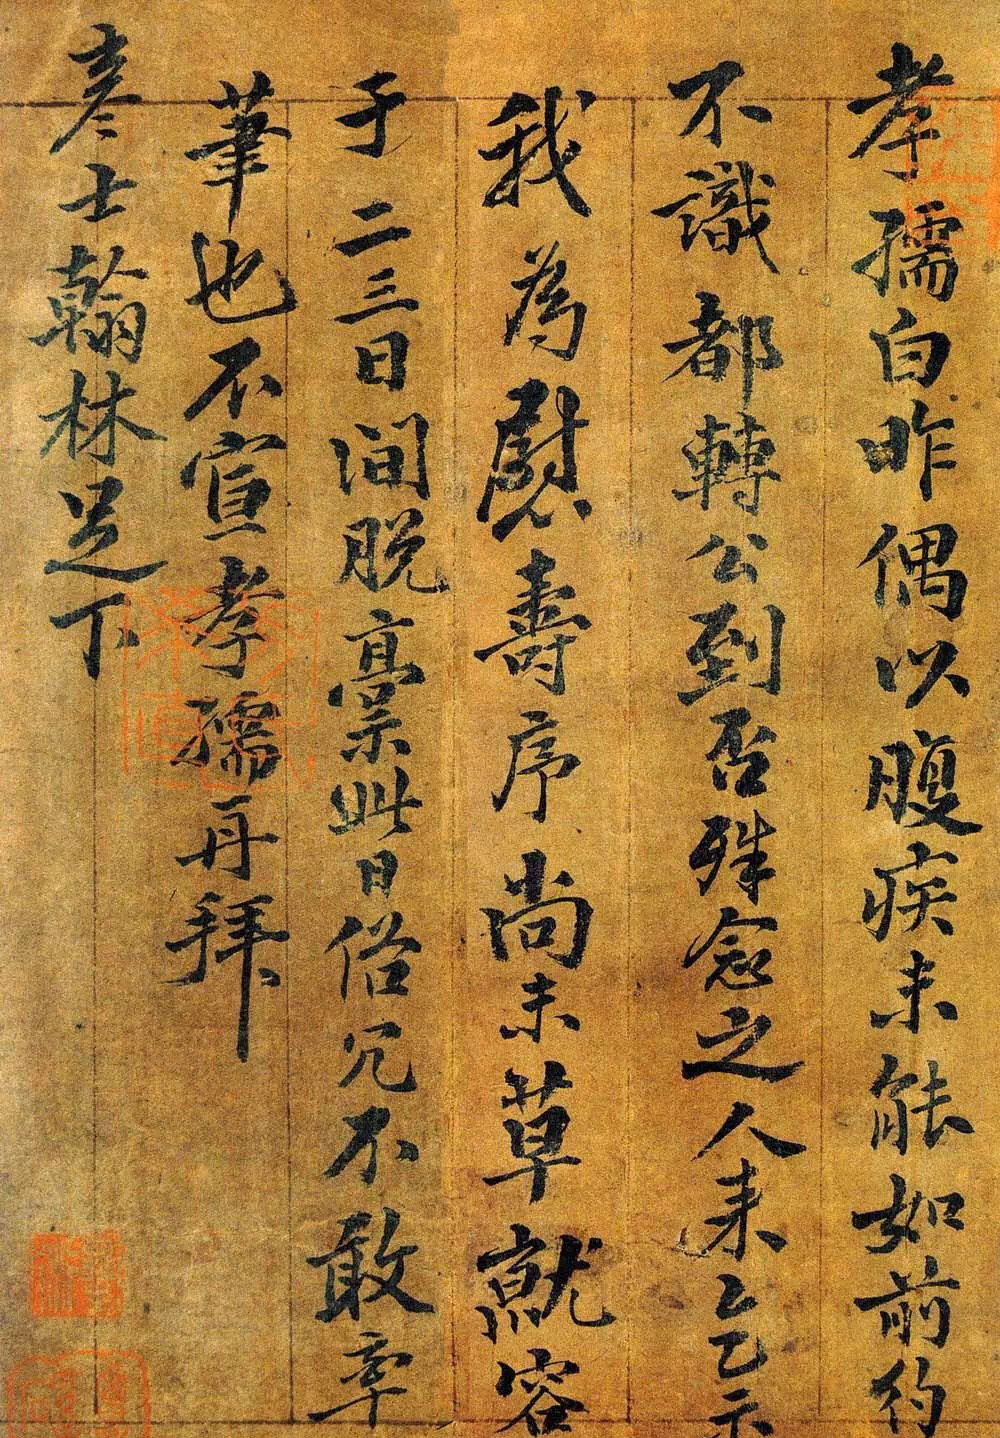 孝孺白昨偶以腹疾未能如前約
不識都轉公到否殊念之人来乞示
我為慰壽序尚未草就容
于二三日間脱藁此日俗冗不敢率
筆也不宣孝孺再拜
彦士翰林足下